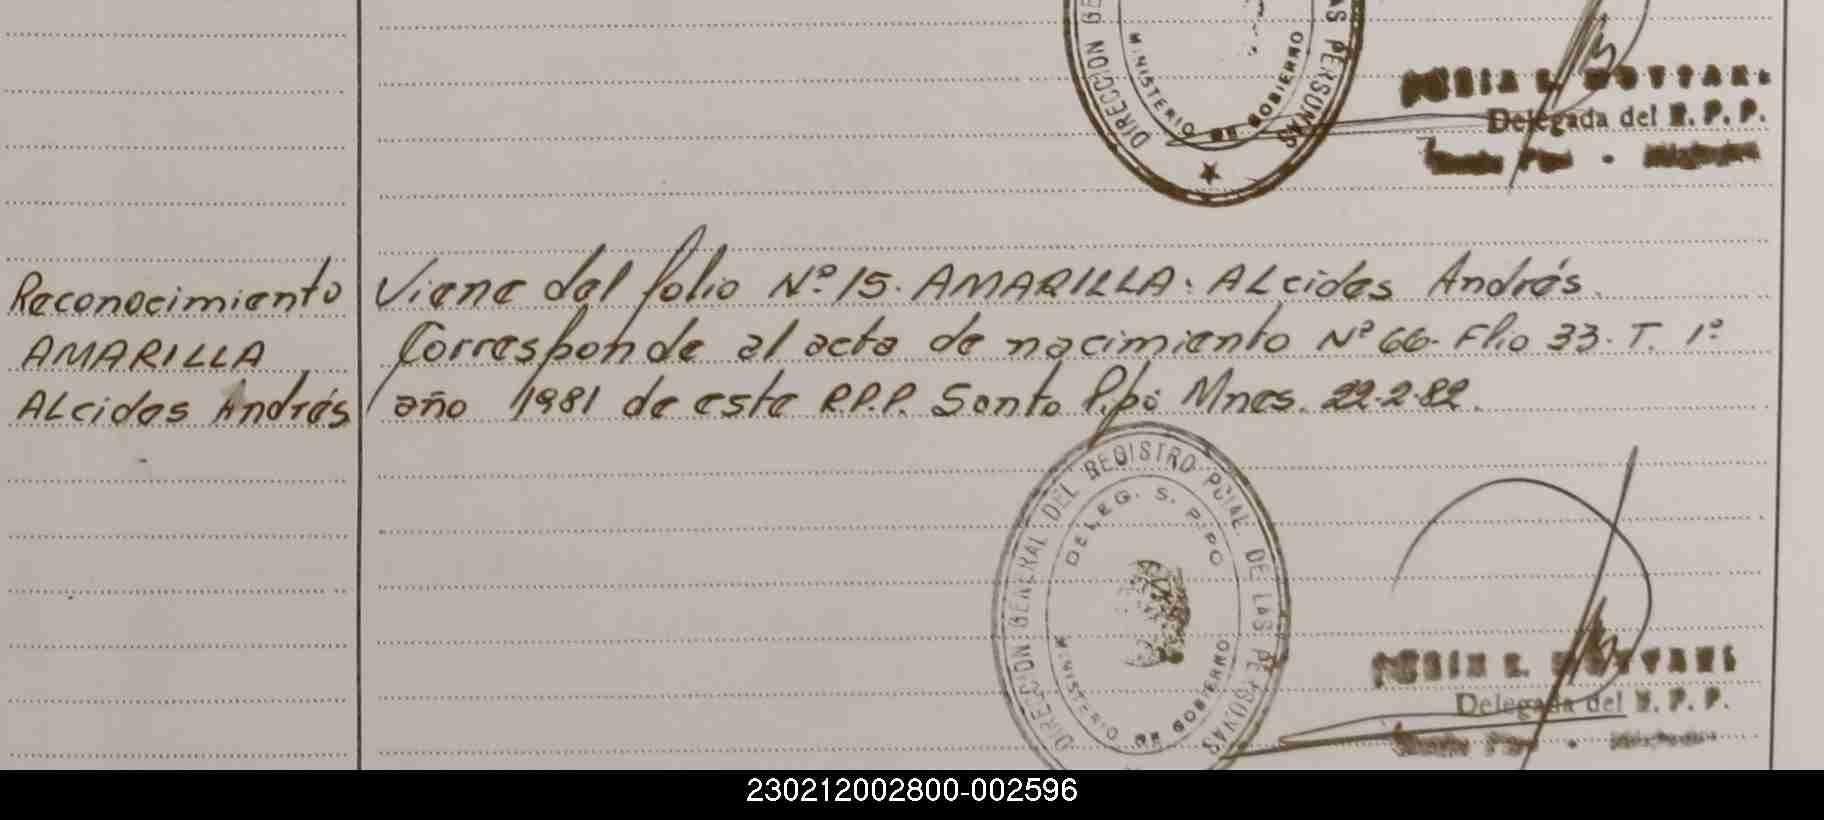 DIRECCION GE
AS PERSONAS
MINISTERIO DE GOBIERNO
Delegada del R. P. P.
Reconocimiento
AMARILLA
ALcides Andrés
Viene del folio Nº 15. AMARILLA. ALcides Andrés.
Corresponde al acta de nacimiento Nº 66. Flio 33. T. 1º
año 1981 de este R.P.P. Santo Pipó Mnes. 22.2.82.
DIRECCION GENERAL DEL REGISTRO PCIAL DE LAS PERSONAS
DELEG. S. PIPO
MINISTERIO DE GOBIERNO
Delegada del R. P. P.
230212002800-002596